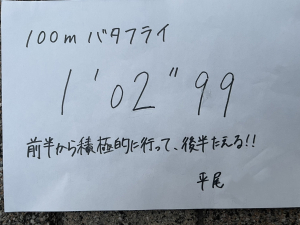 100m バタフライ
1'02"99
前半から積極的に行って、後半たえる!!
平尾